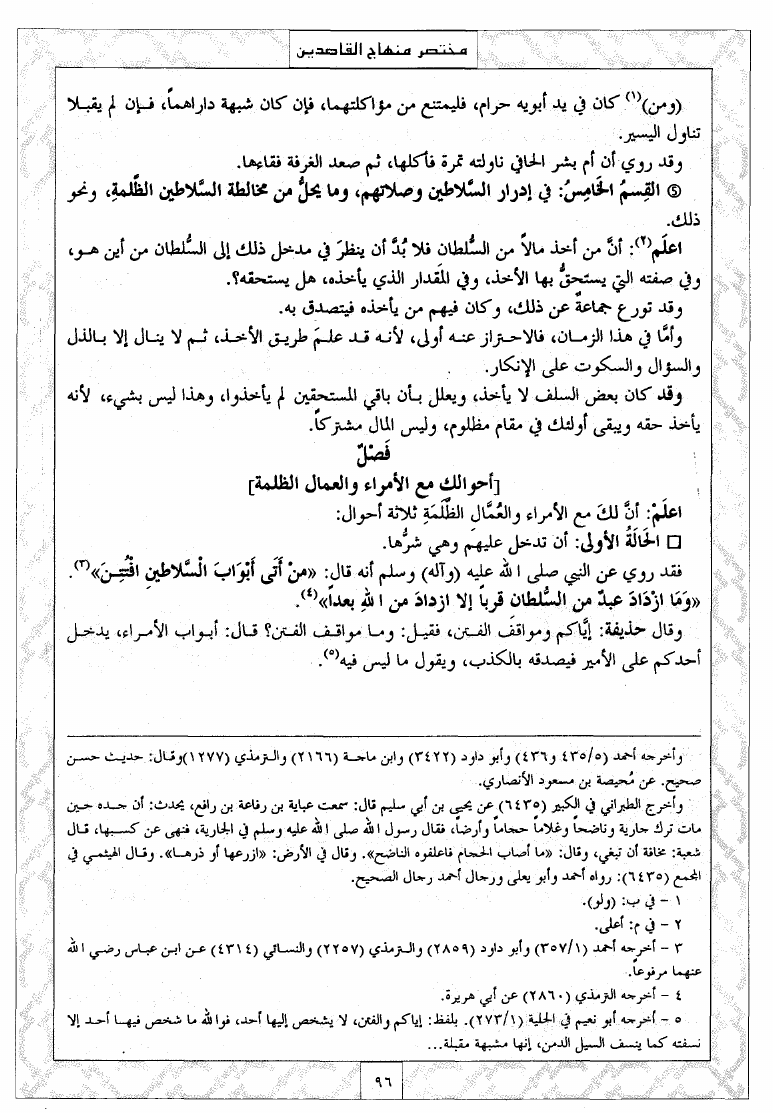 مختصر منهاج القاصدين
(ومن)(١) كان في يد أبويه حرام، فليمتنع من مؤاكلتهما، فإن كان شبهة داراهماً، فإن لم يقبلا
تناول اليسير.
وقد روي أن أم بشر الحافي ناولته تمرة فأكلها، ثم صعد الغرفة فقاءها.
⑤ القِسمُ الخَامِسُ: في إدرار السَّلاطين وصلاتهم، وما يحلُّ من مخالطة السَّلاطين الظَّلمةِ، ونحو
ذلك.
اعلَم(٢): أنَّ من أخذ مالاً من السُّلطان فلا بُدَّ أن ينظرَ في مدخل ذلك إلى السُّلطان من أين هو،
وفي صفته التي يستحقُّ بها الأخذ، وفي المقدار الذي يأخذه، هل يستحقه؟.
وقد تورع جماعةٌ عن ذلك، وكان فيهم من يأخذه فيتصدق به.
وأمَّا في هذا الزمان، فالاحتراز عنه أولى، لأنه قد علمَ طريق الأخذ، ثم لا ينال إلا بالذل
والسؤال والسكوت على الإنكار.
وقد كان بعض السلف لا يأخذ، ويعلل بأن باقي المستحقين لم يأخذوا، وهذا ليس بشيء، لأنه
يأخذ حقه ويبقى أولئك في مقام مظلوم، وليس المال مشتركاً.
فَصْلٌ
[أحوالك مع الأمراء والعمال الظلمة]
اعلَمْ: أنَّ لكَ مع الأمراء والعُمَّال الظَّلَمَةِ ثلاثة أحوال:
□ الحَالَةُ الأولى: أن تدخل عليهم وهي شرُّها.
فقد روي عن النبي صلى الله عليه (وآله) وسلم أنه قال: «مَنْ أَتَى أَبْوَابَ الْسَّلاطينِ افْتُتِنَ»(٣).
«وَمَا ازْدَادَ عبدٌ من السُّلطان قرباً إلا ازدادَ من اللهِ بعداً»(٤).
وقال حذيفة: إيَّاكم ومواقفَ الفتن، فقيل: وما مواقف الفتن؟ قال: أبواب الأمراء، يدخل
أحدكم على الأمير فيصدقه بالكذب، ويقول ما ليس فيه(٥).
وأخرجه أحمد (٤٣٥/٥ و٤٣٦) وأبو داود (٣٤٢٢) وابن ماجة (٢١٦٦) والترمذي (١٢٧٧)وقال: حديث حسن
صحيح. عن مُحيصة بن مسعود الأنصاري.
وأخرج الطبراني في الكبير (٦٤٣٥) عن يحيى بن أبي سليم قال: سمعت عباية بن رفاعة بن رافع، يحدث: أن جده حين
مات ترك جارية وناضحاً وغلاماً حجاماً وأرضاً، فقال رسول الله صلى الله عليه وسلم في الجارية، فنهى عن كسبها، قال
شعبة: مخافة أن تبغي، وقال: «ما أصاب الحجام فاعلفوه الناضح». وقال في الأرض: «ازرعها أو ذرها». وقال الهيثمي في
المجمع (٦٤٣٥): رواه أحمد وأبو يعلى ورجال أحمد رجال الصحيح.
١ – في ب: (ولو).
٢ – في م: أعلى.
٣ – أخرجه أحمد (٣٥٧/١) وأبو داود (٢٨٥٩) والترمذي (٢٢٥٧) والنسائي (٤٣١٤) عن ابن عباس رضي الله
عنهما مرفوعاً.
٤ – أخرجه الترمذي (٢٨٦٠) عن أبي هريرة.
٥ – أخرجه أبو نعيم في الحلية (٢٧٣/١). بلفظ: إياكم والفتن، لا يشخص إليها أحد، فوالله ما شخص فيها أحد إلا
نسفته كما ينسف السيل الدمن، إنها مشبهة مقبلة...
٩٦